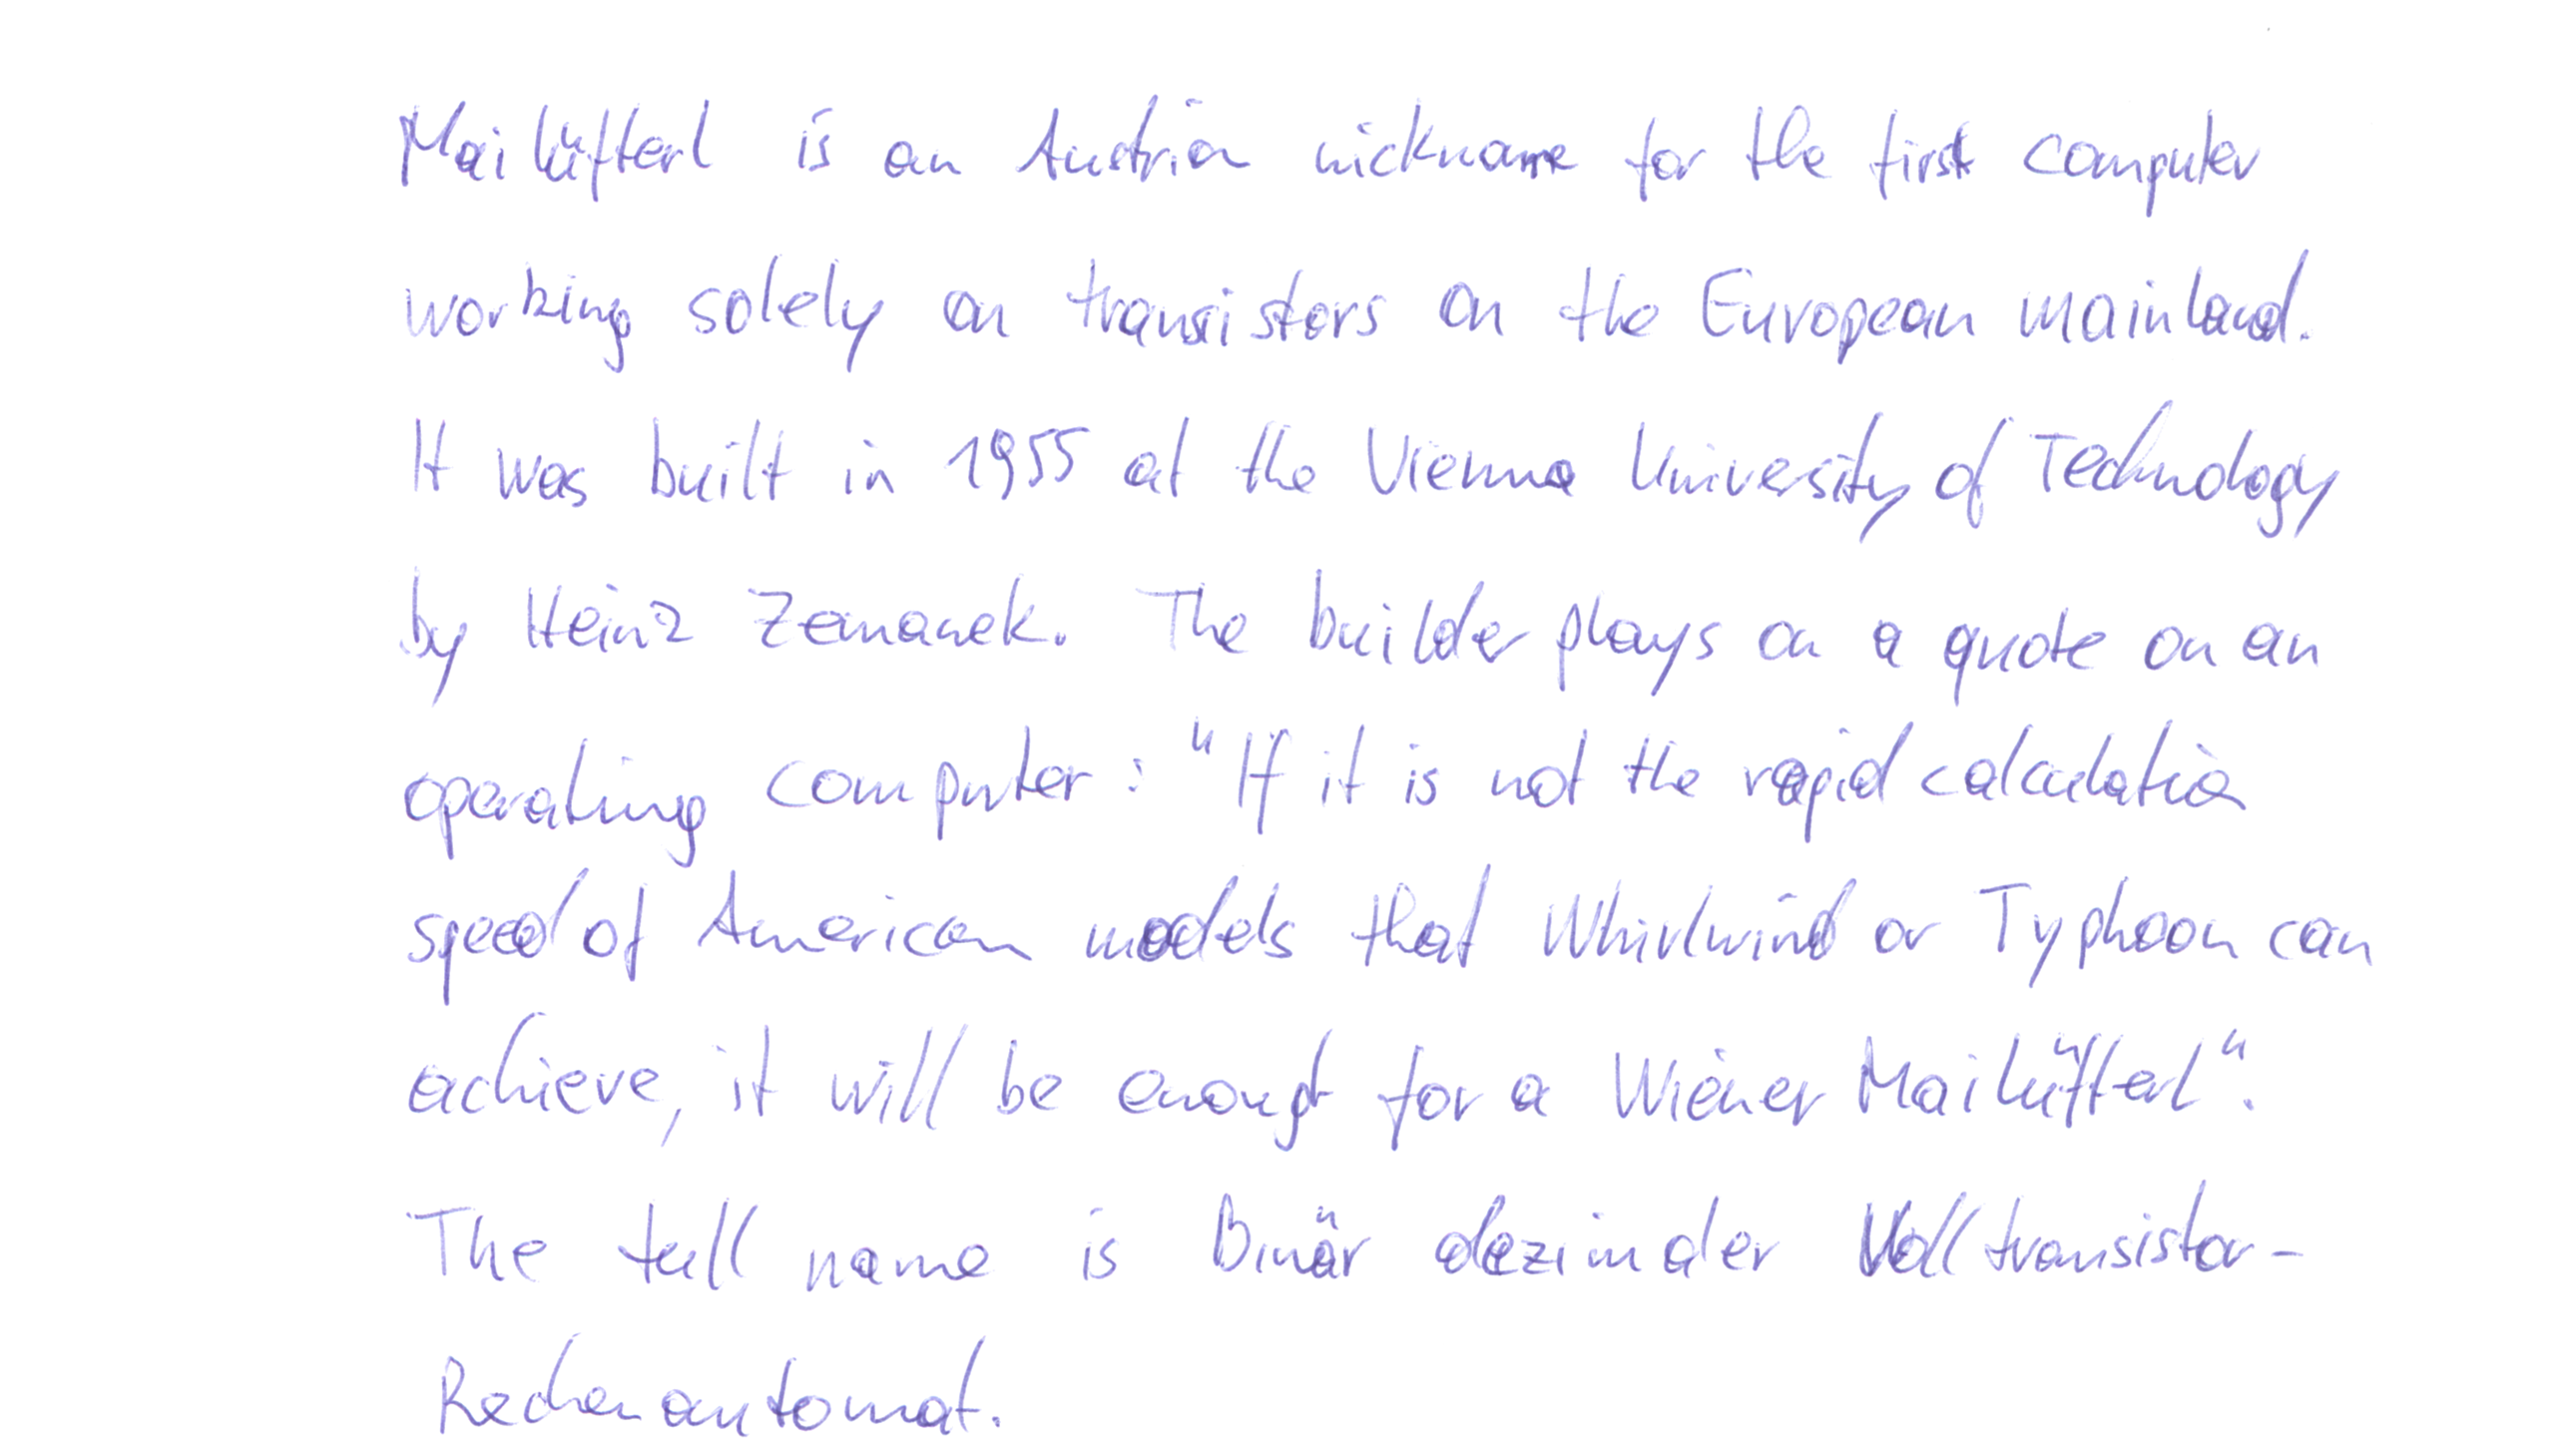 Mailüfterl is an Austrian nickname for the first computer
working solely on transistors on the European mainland.
It was built in 1955 at the Vienna University of Technology
by Heinz Zemanek. The builder plays on a quote on an
operating computer: "If it is not the rapid calculation
speed of American models that Whirlwind or Typhoon can
achieve, it will be enough for a Wiener Mailüfterl".
The full name is Binär dezimaler Volltransistor-
Rechenautomat.